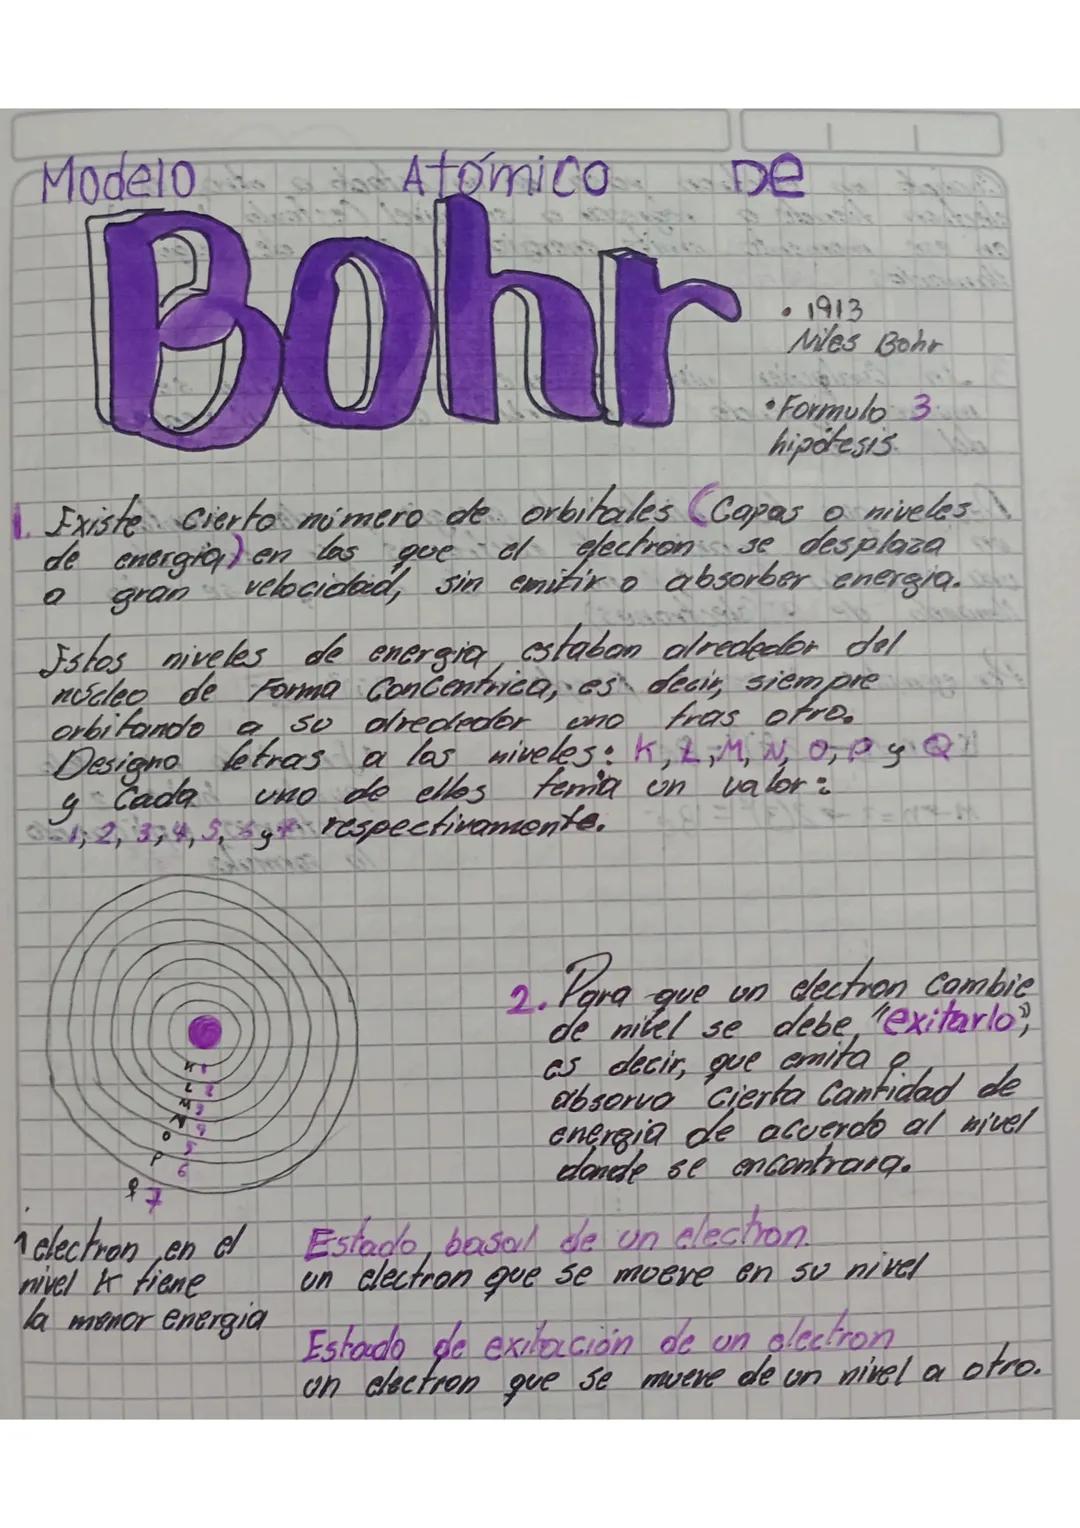 Modelo Atómico De
Bohr
• 1913
Niles Bohr
• Formulo 3
hipótesis.
1. Existe cierto número de orbitales (Capas o niveles
de energia) en las que el electron se desplaza
a gran velocidad, sin emitir o absorber energia.
Estos niveles de energia estaban alrededor del
núcleo de Forma Concentrica, es decir, siempre
orbitando a su alrededor uno tras otro.
Designo letras a los niveles: K, L, M, N, O, P y Q
y Cada uno de ellos tenia un valor:
1, 2, 3, 4, 5, 6 y 7 respectivamente.
K 1
L 2
M 3
N 4
O 5
P 6
Q 7
2. Para que un electron Cambie
de nivel se debe "exitarlo",
es decir, que emita o
absorva cierta Cantidad de
energia de acuerdo al nivel
donde se encontrara.
1 electron en el
nivel K tiene
la menor energia
Estado basal de un electron.
un electron que se mueve en su nivel
Estado de exitación de un electron
un electron que se mueve de un nivel a otro.